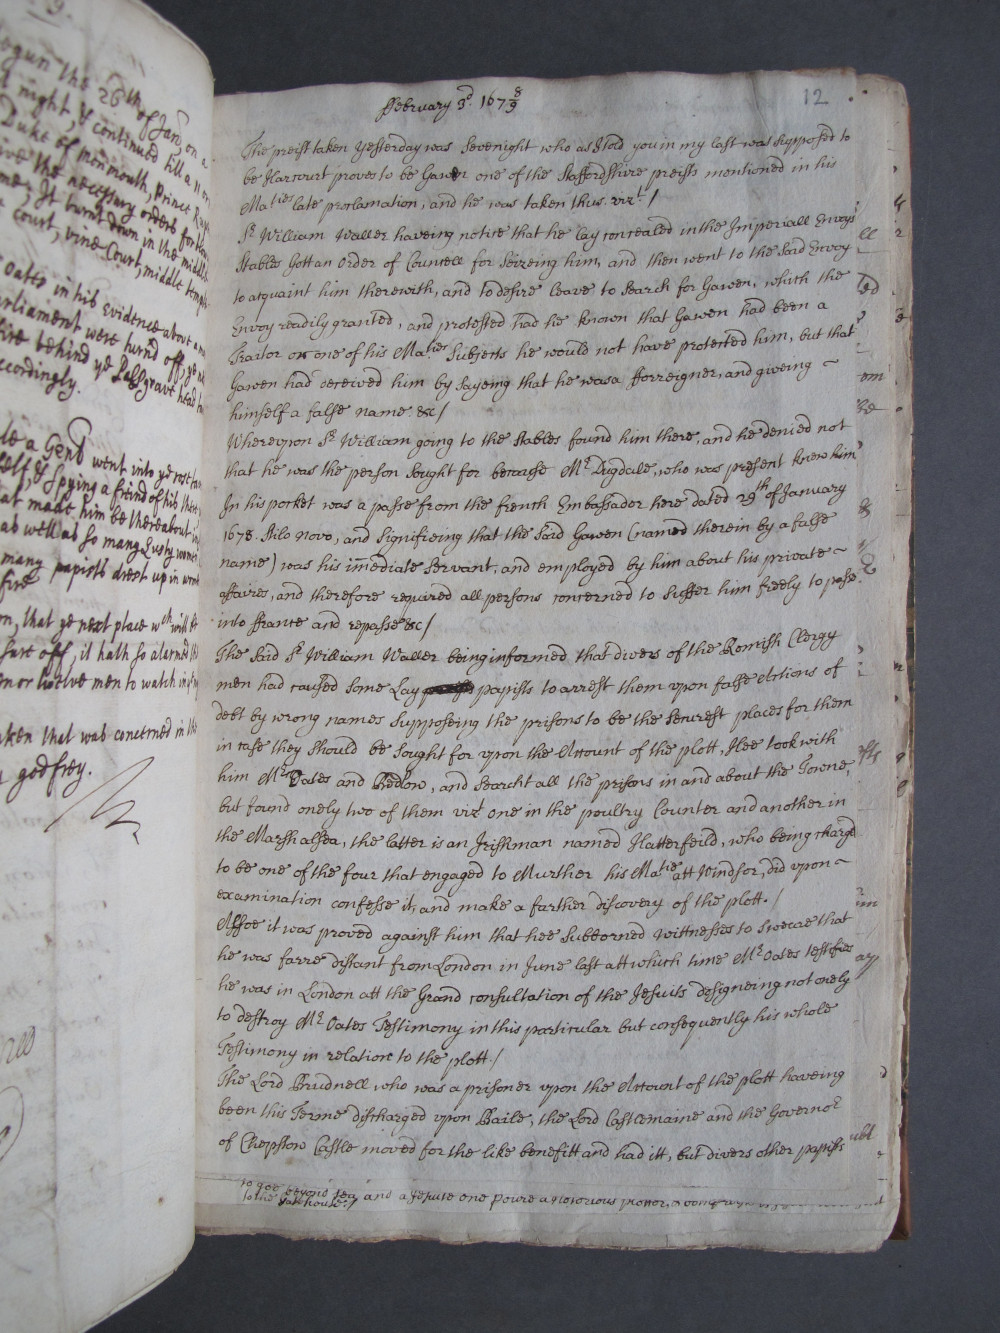 9.
begun the 26th of Jan on a
night, & continued till a 11 on
Duke of monmouth, Prince Rup
give the necessary orders for the
It burnt down in the middle
court, vine Court, middle temple
Oates in his evidence about
parliament were turnd off, ye
behind ye Palsgrave head
accordingly.
a Gent went into ye
self, & Spying a freind of his there
made him be thereabout
as well as so many Lusty women
many papists drest up in
fire
that ye next place wch will be
sure off, it hath so alarmed
or twelve men to watch in
taken that was concerned in the
godfrey.
ffebruary 3d. 167 8/9
12
The preist taken Yesterday was Sevenight who as I told you in my last was supposed to
be Harcourt proves to be Gawen one of the Staffordshire preists mentioned in his
Maties late proclamation, and he was taken thus. vizt. /
Sr. William Waller haveing notice that he lay concealed in the Imperiall Envoys
Stables Gott an Order of Councell for Seizeing him, and then went to the Said Envoy
to acquaint him therewith, and to desire leave to Search for Gawen, which the
Envoy readily granted, and protested had he known that Gawen had been a
Traitor or one of his Maties Subjects he would not have protected him, but that
Gawen had deceived him by Sayeing that he was a fforreigner, and giveing ~
himself a false name &c /
Whereupon Sr. William going to the Stables found him there, and he denied not
that he was the person Sought for because Mr. Dugdale, who was present knew him
In his pocket was a passe from the french Embassador here dated 29th of January
1678. Stilo novo, and Signifieing that the Said Gawen (named therein by a false
name) was his imediate Servant, and employed by him about his private ~
affaires, and therefore required all persons concerned to Suffer him freely to passe
into ffrance and repasse &c /
The Said Sr. William Waller being informed that divers of the Romish Clergy
men had caused Some Lay papists to arrest them upon false Actions of
debt by wrong names Supposeing the prisons to be the Securest places for them
in case they should be Sought for upon the Account of the plott, Hee took with
him Mr. Oates and Bedlow, and Searcht all the prisons in and about the Towne,
but found onely two of them vizt one in the poultry Counter and another in
the Marshalsea, the latter is an Irishman named Hatterfeild, who being charged
to be one of the four that engaged to Murther his Matie att Windsor, did upon ~
examination confesse it, and make a farther discovery of the plott. /
Alsoe it was proved against him that hee Subborned Wittnesses to Sweare that
he was farre distant from London in June last att which time Mr. Oates testifies
he was in London att the Grand Consultation of the Jesuits designeing not onely
to destroy Mr. Oates Testimony in this particular but consequently his whole
Testimony in relation to the plott. /
The Lord Brudnell who was a prisoner upon the Account of the plott haveing
been this Terme discharged upon Baile, the Lord Castlemaine and the Governor
of Chepstow Castle moved for the like benefitt and had itt, but divers other papists
to goe beyond sea and a Jesuite one Poure a notorious plotter,
to the Gatehouse. /